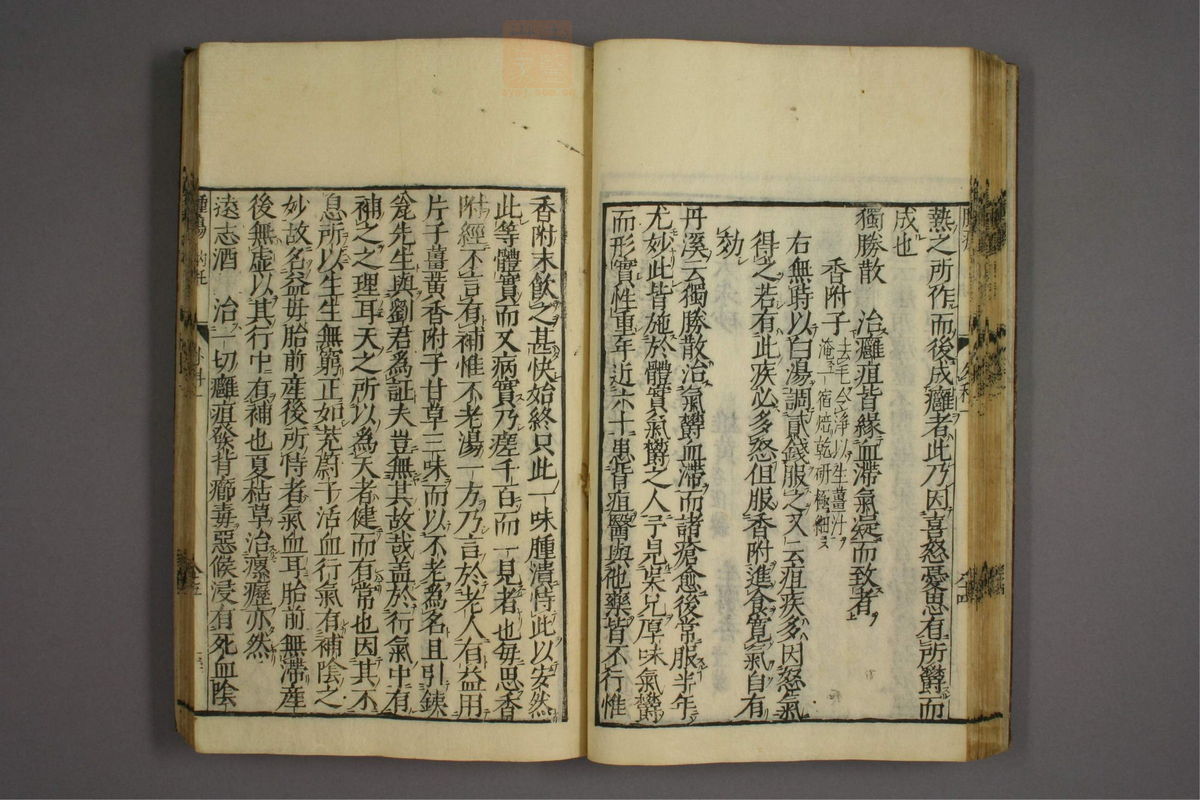 熱之所作而後成癰者此乃因喜怒憂思有所欝而
成也
獨勝散　治癰疽皆緣血滯氣凝而致者
香附子 去毛令淨以生薑汁
淹一宿焙乾研極細
右無時以白湯調貳錢服之又云疽疾多因怒氣
得之若有此疾必多怒但服香附進食寬氣自有
効
丹溪云獨勝散治氣欝血滯而諸瘡愈後常服半年
尤妙此皆施於體實氣欝之人予見吳兄厚味氣欝
而形實性重年近六十患背疽醫與他藥皆不行惟
香附末飲之甚快始終只此一味腫潰恃此以安然
此等體實而又病實乃瘥千百而一見者也每思香
附經不言有補惟不老湯一方乃言於老人有益用
片子薑黃香附子甘草三味而以不老為名且引鐵
瓮先生與劉君為証夫豈無其故哉盖於行氣中有
補之之理耳天之所以為天者健而有常也因其不
息所以生生無窮正如茺蔚子活血行氣有補陰之
妙故名益母胎前産後所恃者氣血耳胎前無滯産
後無虛以其行中有補也夏枯草治瘰癧亦然
遠志酒　治一切癰疽發背癤毒惡候浸有死血陰